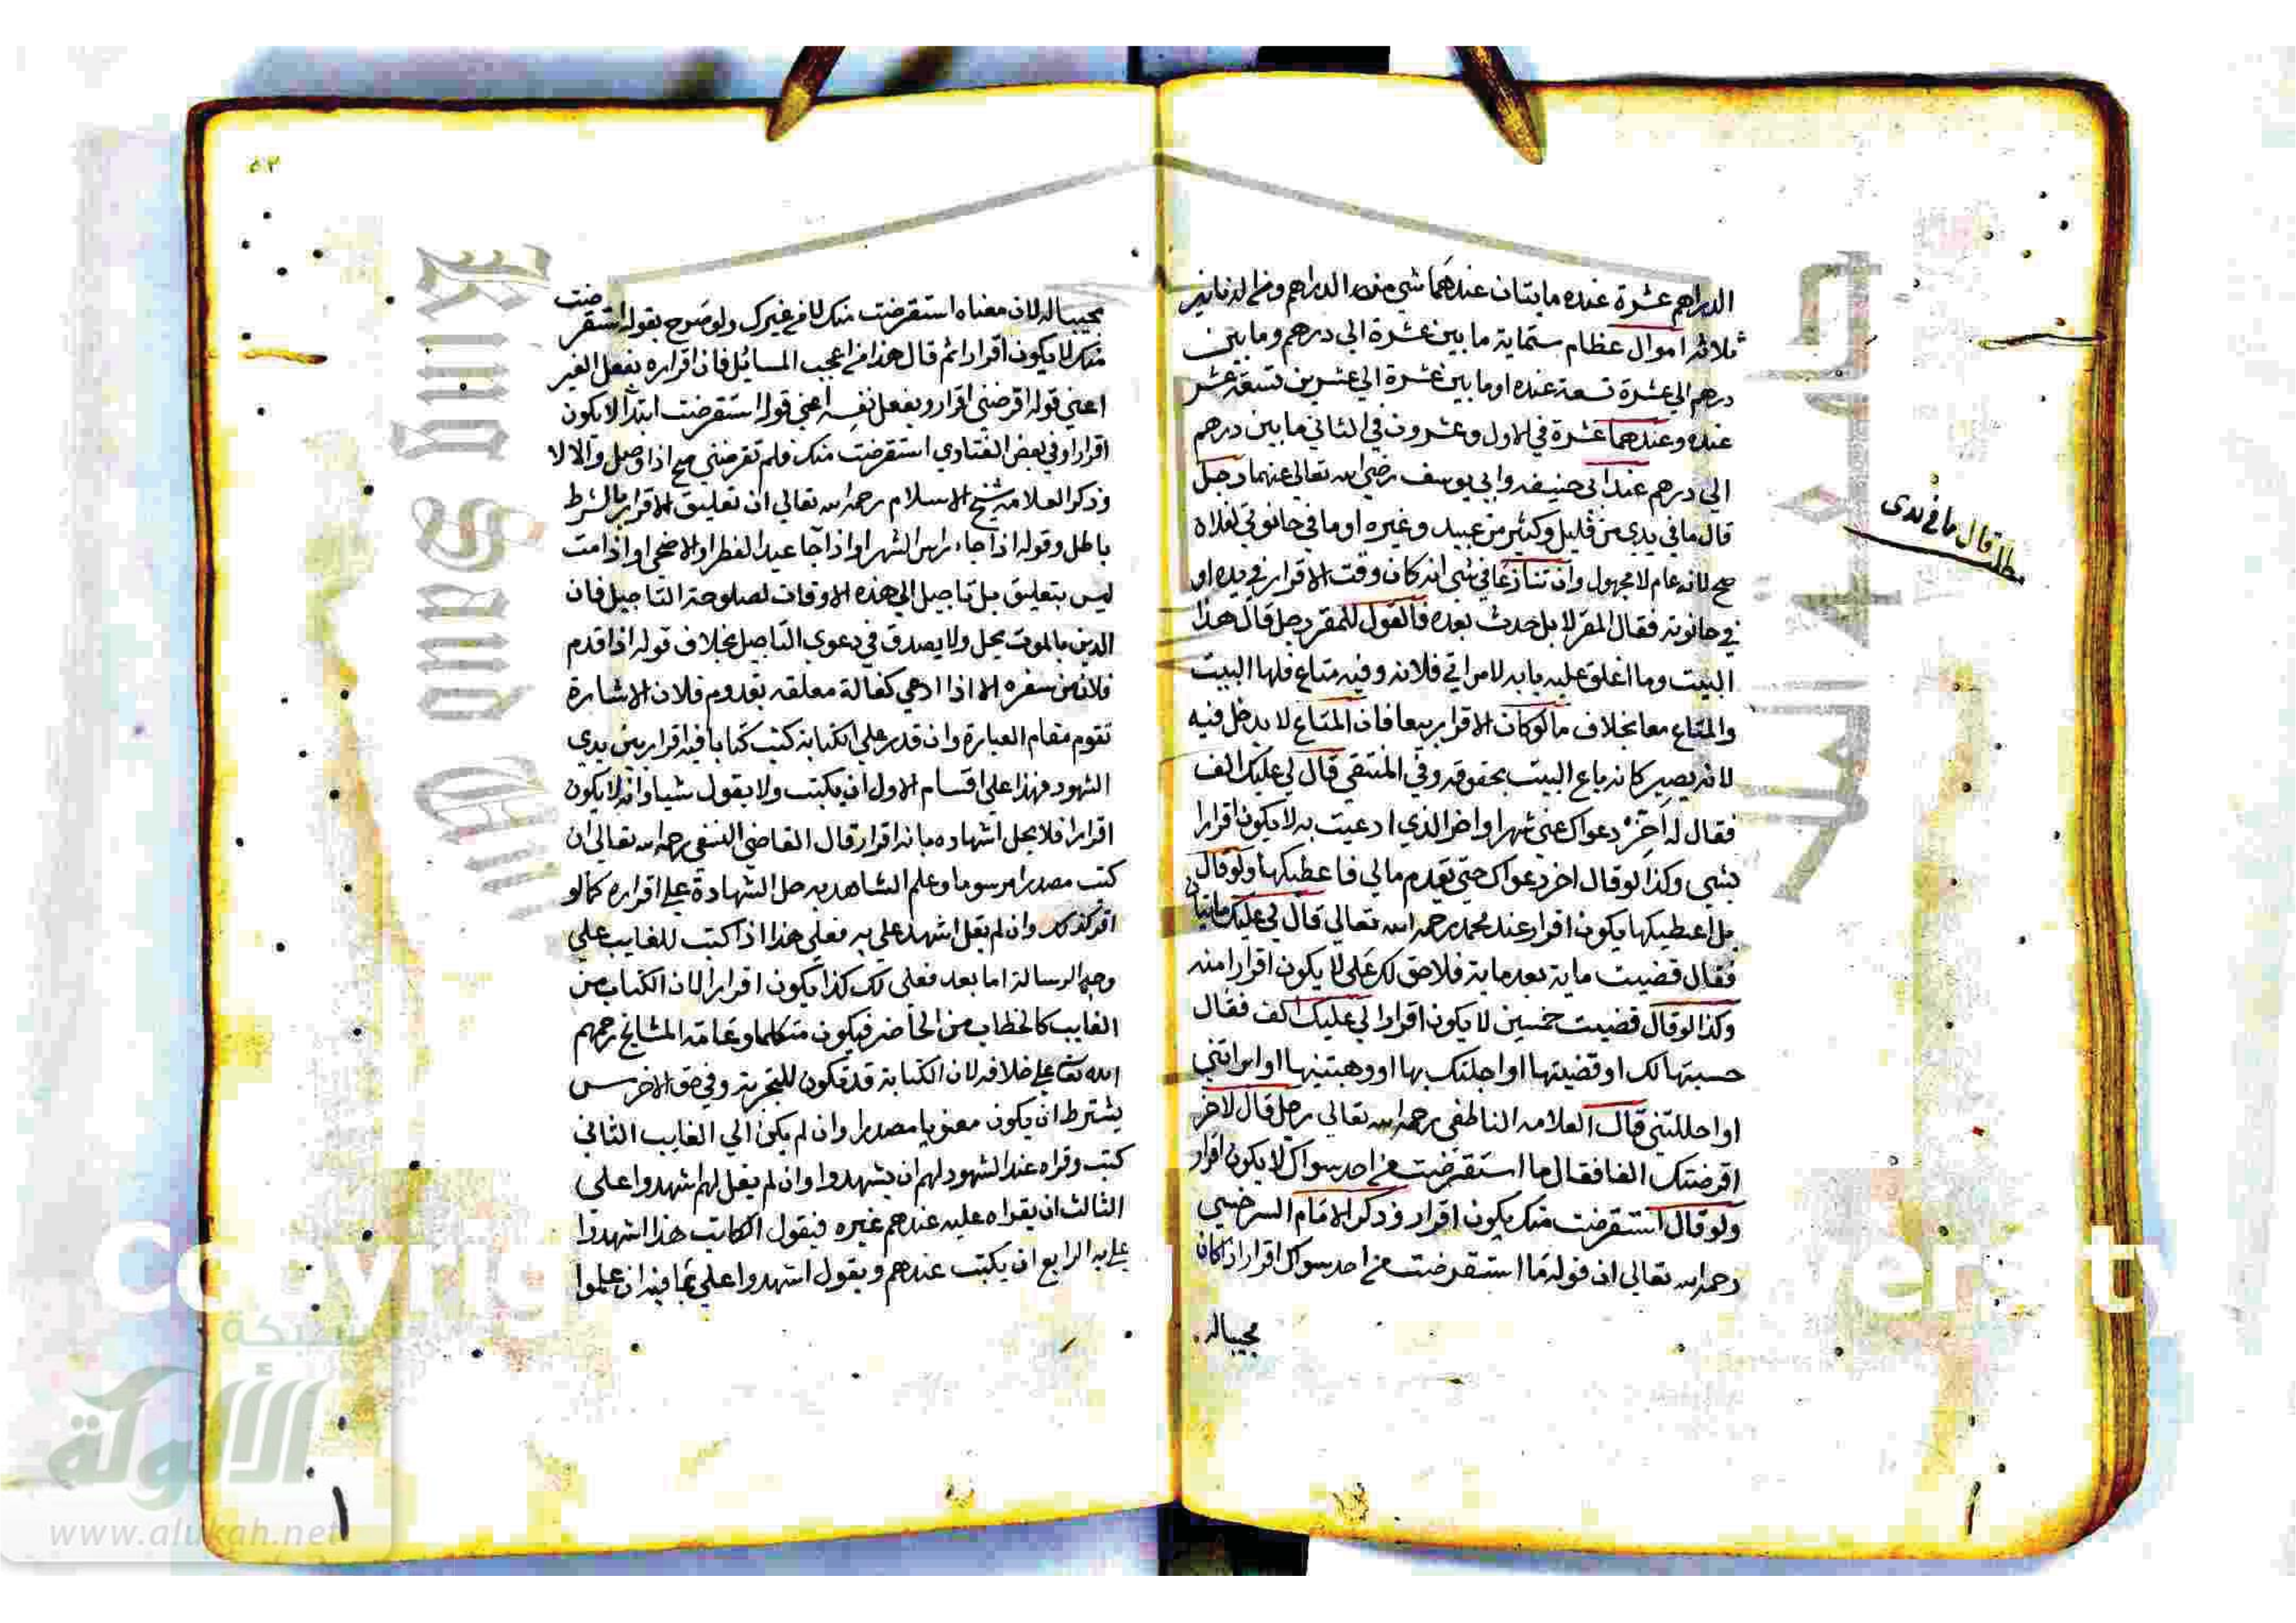 الدراهم عشرة عنده مايتان عندهما شي من الدراهم ومن الدنانير
ثلاثة اموال عظام ستماية ما بين عشرة الي درهم وما بين
درهم الي عشرة تسعة عنده او ما بين عشرة الي عشرين تسعة عشر
عنده وعندهما عشرة في الاول وعشرون في الثاني ما بين درهم
الي درهم عند ابي حنيفه وابي يوسف رضي الله تعالي عنهما رجل
قال ما في يدي من قليل وكثير من عبيد وغيره او ما في حانوتي لفلان
صح لانه عام لا مجهول وان تنازعا في شي انه كان وقت الاقرار في يده او
في حانوته فقال المقر لا بل حدث بعده فالقول للمقر رجل قال هذا
البيت وما اغلق عليه بابه لامراتي فلانه وفيه متاع فلها البيت
والمتاع معا بخلاف ما لو كان الاقرار بيعا فان المتاع لا يدخل فيه
لانه يصير كانه باع البيت بحقوقه وفي المنتقي قال لي عليك الف
فقال له اخر دعواك عني شهرا او اخر الذي ادعيت به لا يكون اقرارا
بشي وكذا لو قال اخر دعواك حتي يقدم مالي فاعطيكها ولو قال
بل اعطيكها يكون اقرار عند محمد رحمه الله تعالي قال لي عليك مايتان
فقال قضيت ماية بعد ماية فلا حق لك علي لا يكون اقرارا منه
وكذا لو قال قضيت خمسين لا يكون اقرارا لي عليك الف فقال
حسبتها لك او قضيتها او اجلتك بها او وهبتنيها او ابراتني
او احللتني قال العلامه الناطفي رحمه الله تعالي رجل قال لاخر
اقرضتك الفا فقال ما استقرضت من احد سواك لا يكون اقرار
ولو قال استقرضت منك يكون اقرار وذكر الامام السرخسي
رحمه الله تعالي ان قوله ما استقرضت من احد سواك اقرار اذا كان
مجيبا له
مطلب قال ما في يدي
٥٢
مجيبا له لان معناه استقرضت منك لا من غيرك ولو صرح بقوله استقرضت
منك لا يكون اقرارا ثم قال هذا من اعجب المسائل فان اقراره بفعل الغير
اعني قوله اقرضني اقرار وبفعل نفسه اعني قوله استقرضت ابتدا لا يكون
اقرارا وفي بعض الفتاوي استقرضت منك فلم تقرضني صح اذا وصل والا لا
وذكر العلامه شيخ الاسلام رحمه الله تعالي ان تعليق الاقرار بالشرط
باطل وقوله اذا جاء راس الشهر او اذا جا عيد الفطر او الاضحي او اذا مت
ليس بتعليق بل تاجيل الي هذه الاوقات لصلوحة التاجيل فان
الدين بالموت يحل ولا يصدق في دعوي التاجيل بخلاف قوله اذا قدم
فلان من سفره الا اذا ادعي كفالة معلقه بقدوم فلان الاشارة
تقوم مقام العبارة وان قدر علي الكتابة كتب كتابا فيه اقرار بين يدي
الشهود فهذا علي اقسام الاول ان يكتب ولا يقول شيا وانه لا يكون
اقرارا فلا يحل اشهاده بانه اقرار قال القاضي النسفي رحمه الله تعالي ان
كتب مصدرا مرسوما وعلم الشاهد به حل الشهادة علي اقراره كما لو
اقر كذلك وان لم يقل اشهد علي به فعلي هذا اذا كتب للغايب علي
وجه الرسالة اما بعد فعلي لك كذا يكون اقرارا لان الكتاب من
الغايب كالخطاب من الحاضر فيكون متكلما وعامة المشايخ رحمهم
الله تعا علي خلافه لان الكتابة قد تكون للتجربة وفي حق الاخرس
يشترط ان يكون معنويا مصدرا وان لم يكن الي الغايب الثاني
كتب وقراه عند الشهود لهم ان يشهدوا وان لم يقل لهم اشهدوا علي
الثالث ان يقراه عليه عندهم غيره فيقول الكاتب هذا اشهدوا
علي به الرابع ان يكتب عندهم ويقول اشهدوا علي بما فيه ان علموا
شبكة
الألوكة
www.alukah.net